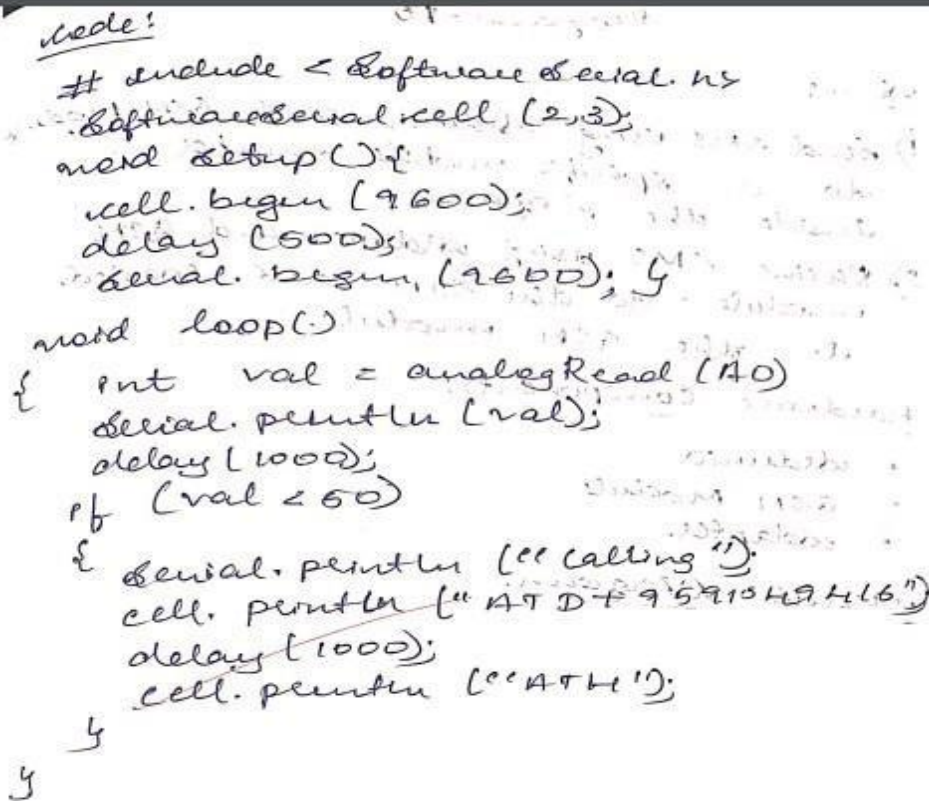 Code:
# include < Software Serial.h>
SoftwareSerial cell (2,3);
void setup () {
cell. begin (9600);
delay (500);
Serial. begin (9600); }
void loop()
{ int val = analogRead (A0)
Serial. println (val);
delay (1000);
if (val < 50)
{ Serial. println ("Calling");
cell. println ("ATD+9591549416")
delay (1000);
cell. println ("ATH");
}
}